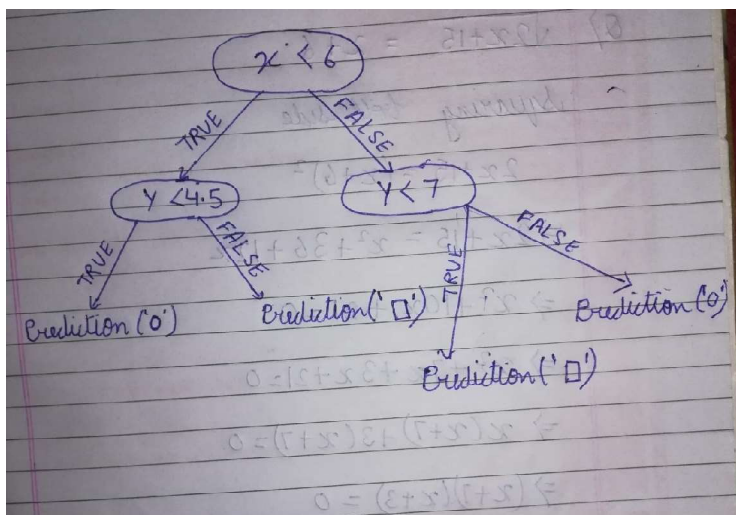 x < 6
TRUE
FALSE
Y < 4.5
Y < 7
TRUE
FALSE
TRUE
FALSE
Prediction ('O')
Prediction ('□')
Prediction ('□')
Prediction ('O')